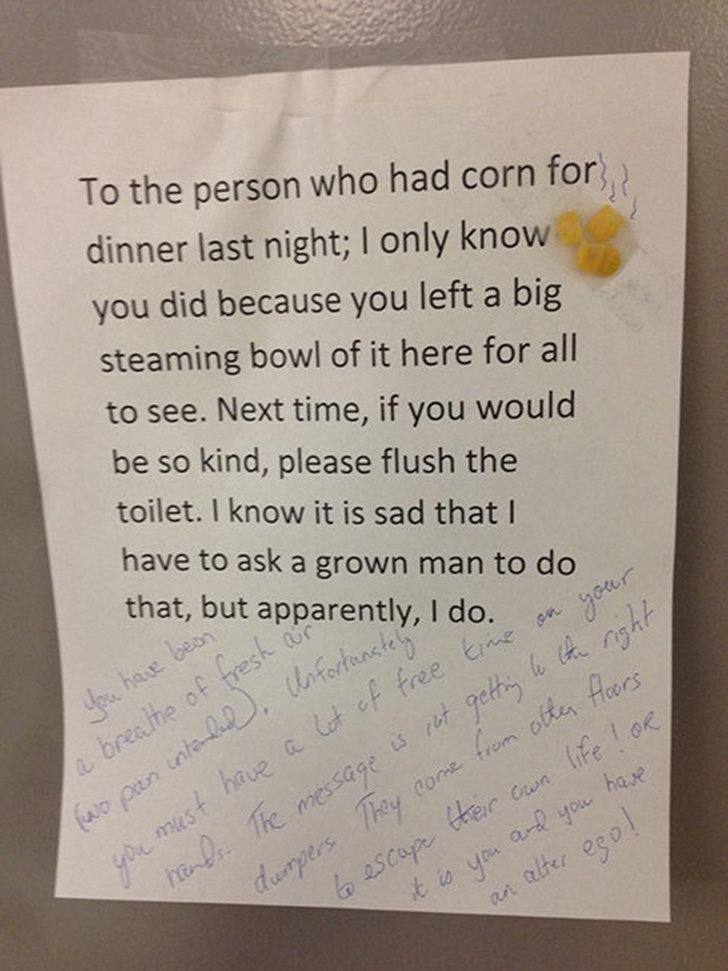 To the person who had corn for
dinner last night; I only know
you did because you left a big
steaming bowl of it here for all
to see. Next time, if you would
be so kind, please flush the
toilet. I know it is sad that I
have to ask a grown man to do
that, but apparently, I do.
You have been
a breathe of fresh air
(no pun intended). Unfortunately
you must have a lot of free time on your
hands. The message is not getting to the right
dumpers. They come from other floors
to escape their own life! OR
it is you and you have
an alter ego!